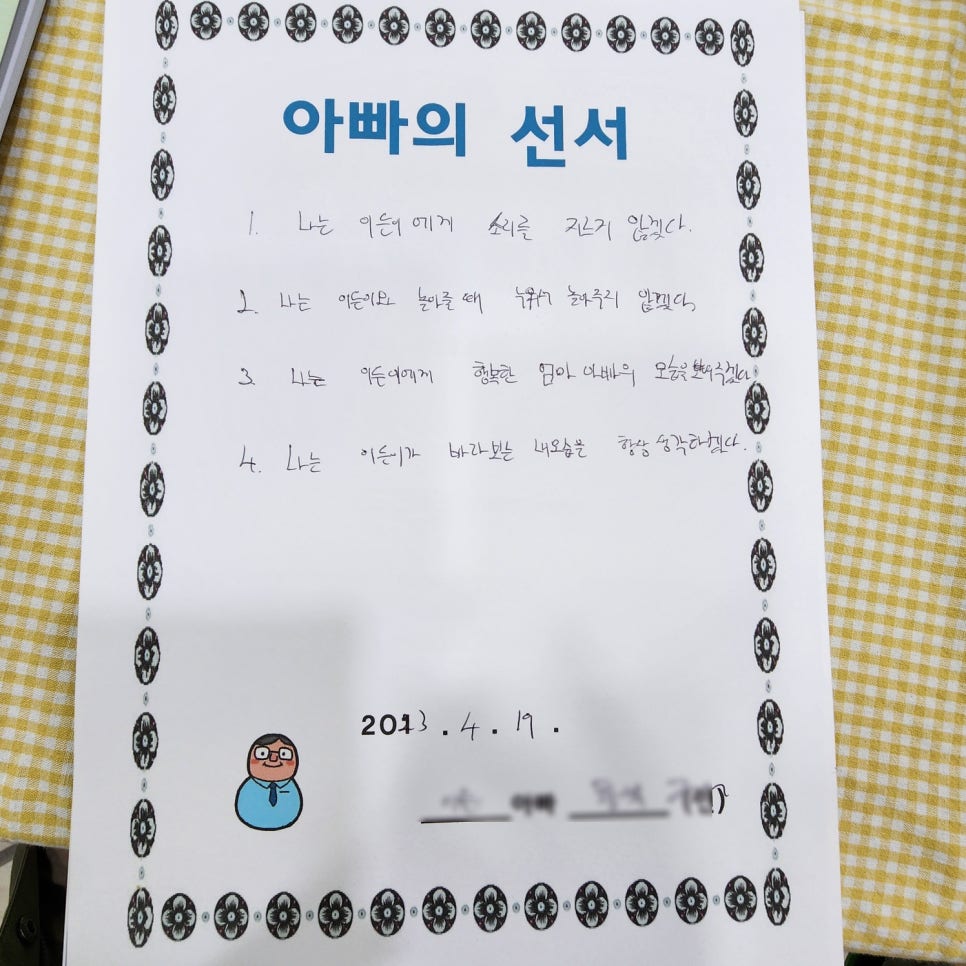 아빠의 선서
1. 나는 이든이에게 소리를 지르지 않겠다.
2. 나는 이든이와 놀아줄때 누워서 놀아주지 않겠다.
3. 나는 이든이에게 행복한 엄마 아빠의 모습을 보여주겠다.
4. 나는 이든이가 바라보는 내모습을 항상 생각하겠다.
2013. 4. 19.
아빠